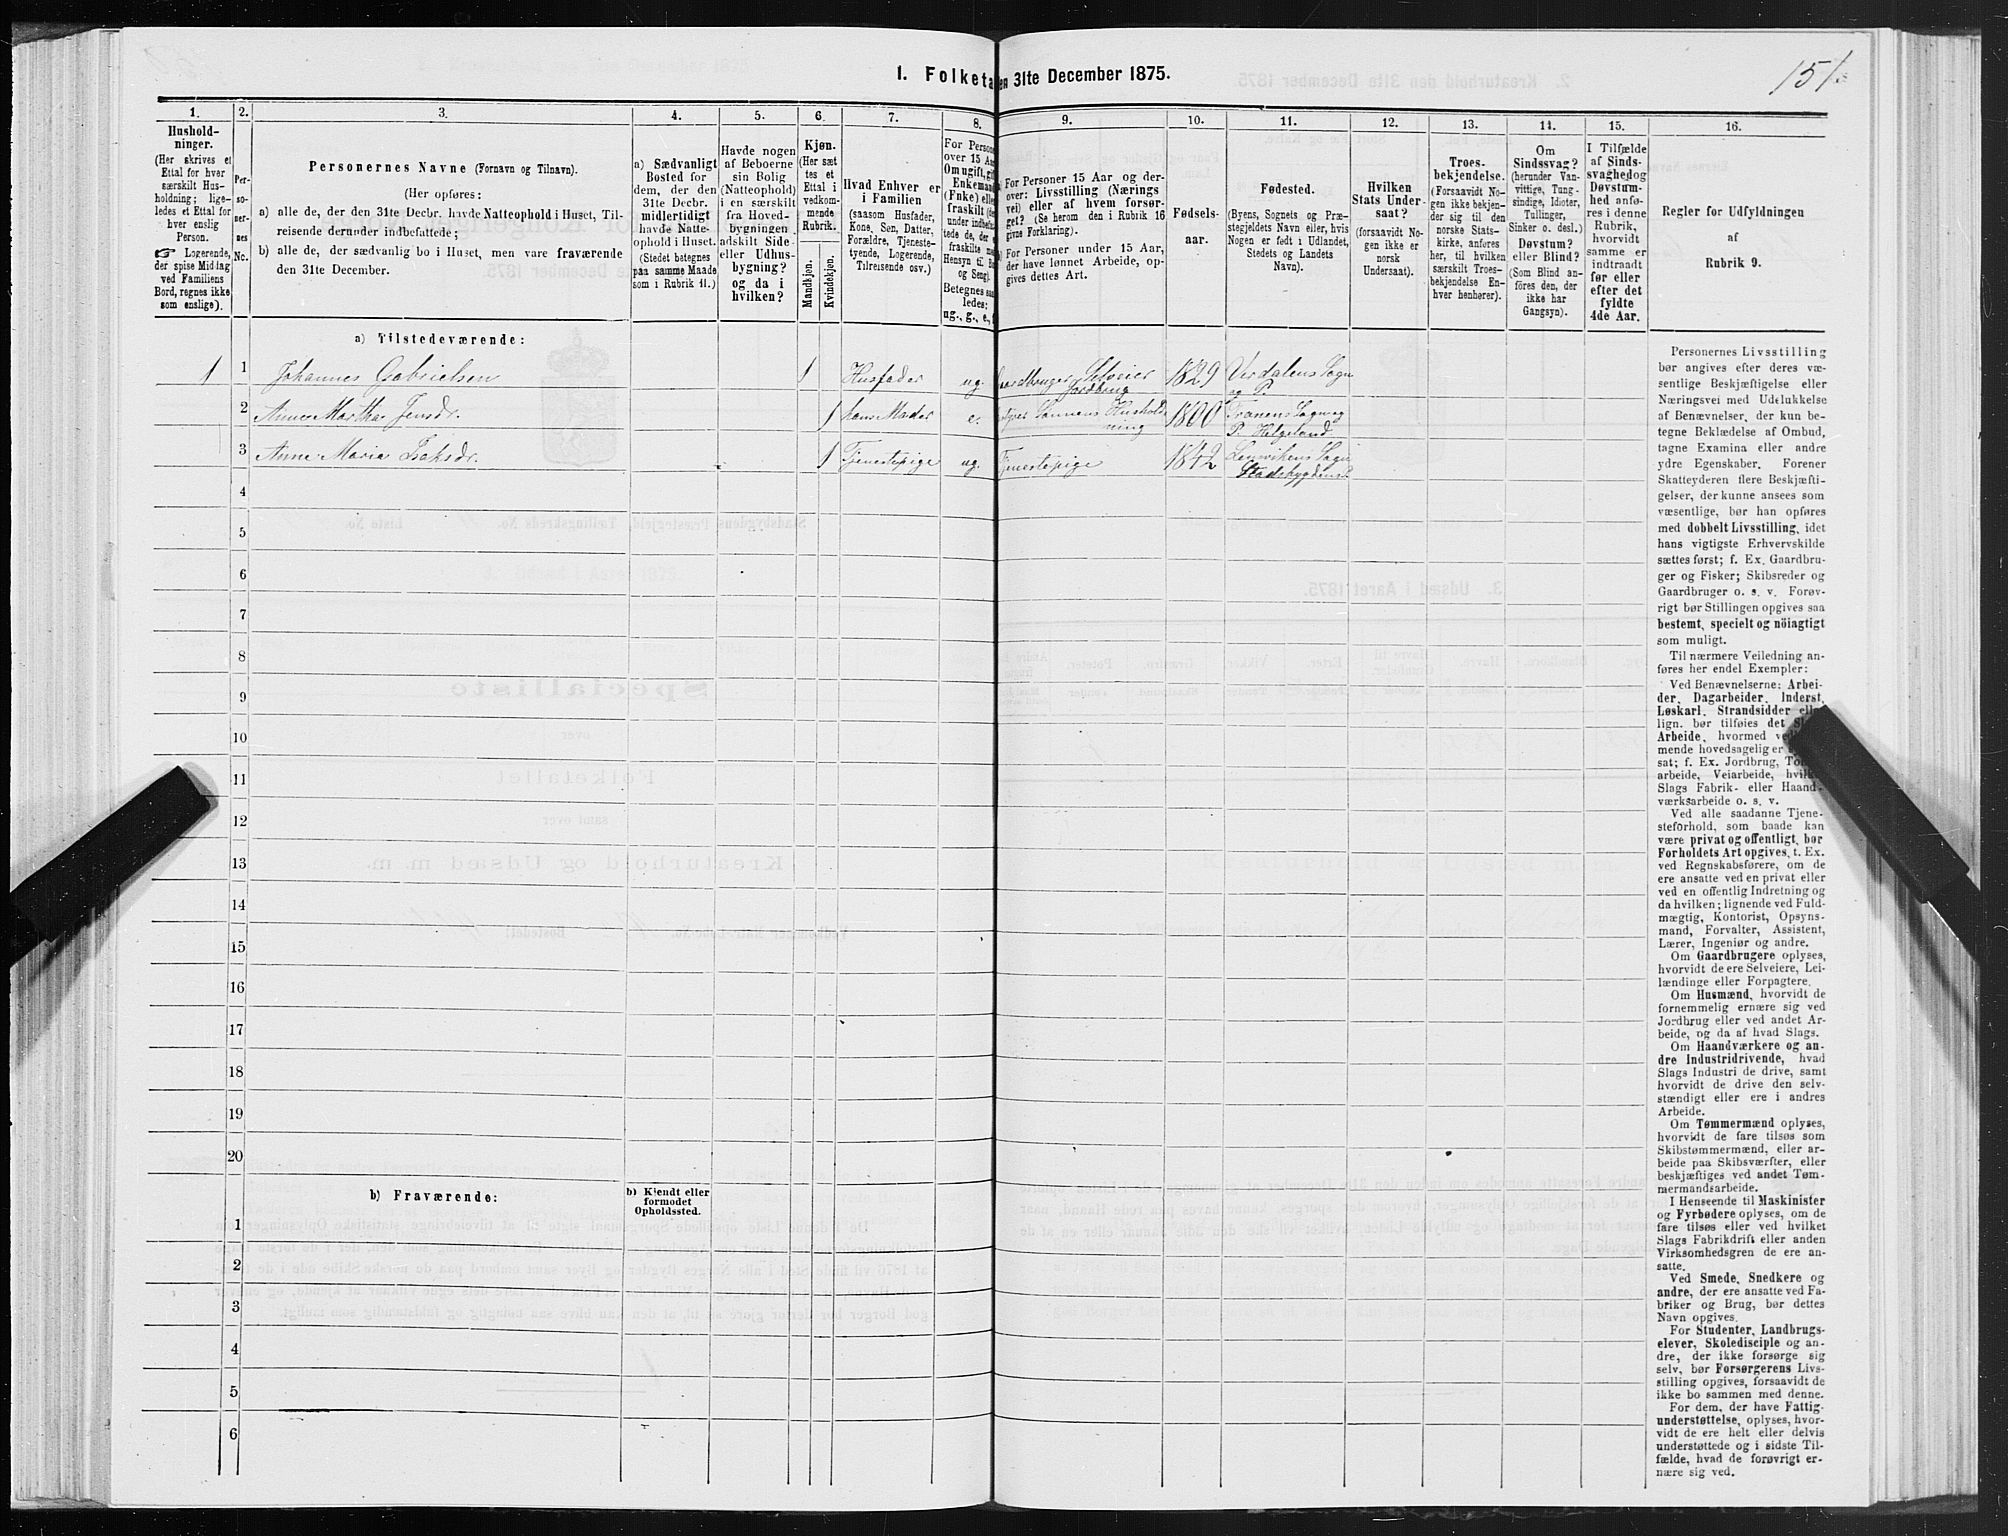 151
1. Folketa
en 31te December 1875.
1.
2.
3.
4.
5.
6.
7.
8.
9.
10.
11.
12.
13.
14.
15.
16.
Hushold-
ninger.
(Her skrives et
Ettal for hver
særskilt Hus-
holdning; lige-
ledes et Ettal for
hver enslig
Person.
☞ Logerende,
der spise Middag
ved Familiens
Bord, regnes ikke
som enslige).
Per-
so-
ner-
nes
No.
Personernes Navne (Fornavn og Tilnavn).
(Her opføres:
a) alle de, der den 31te Decbr. havde Natteophold i Huset, Til-
reisende derunder indbefattede;
b) alle de, der sædvanlig bo i Huset, men vare fraværende
den 31te December.
a) Sædvanligt
Bosted for
dem, der den
31te Decbr.
midlertidigt
havde Natte-
ophold i Huset.
(Stedet betegnes
paa samme Maade
som i Rubrik 11.)
Havde nogen
af Beboerne
sin Bolig
(Natteophold)
i en særskilt
fra Hoved-
bygningen
adskilt Side-
eller Udhus-
bygning?
og da i
hvilken?
Kjøn.
(Her sæt
tes et
Ettal i
vedkom-
mende
Rubrik.
Mandkjøn.
Kvindekjøn.
Hvad Enhver er
i Familien
(saasom Husfader,
Kone, Søn, Datter,
Forældre, Tjeneste-
tyende, Logerende,
Tilreisende osv.)
For Persone
over 15 Aa
Om ugift, gif
Enkemand
(Enke) elle
fraskilt (de
under indbefat
tede de, der
fraskilte
Hensyn til B
og Seng).
Betegnes saa
ledes:
ug., g., e.,
a) For Personer 15 Aar og der-
over: Livsstilling (Nærings
vei) eller af hvem forsør-
get? (Se herom den i Rubrik 16
givne Forklaring).
b) For Personer under 15 Aar,
der have lønnet Arbeide, op-
gives dettes Art.
Fødsels-
aar.
Fødested.
(Byens, Sognets og Præ-
stegjeldets Navn eller, hvis
Nogen er født i Udlandet,
Stedets og Landets
Navn).
Hvilken
Stats Under-
saat?
(forsaavidt No-
gen ikke er
norsk
Undersaat).
Troes-
bekjendelse.
(Forsaavidt No-
gen ikke bekjen-
der sig til den
norske Stats-
kirke, anføres
her, til hvilken
særskilt Troes-
bekjendelse En-
hver henhører).
Om
Sindssvag?
(herunder Van-
vittige, Tung-
sindige, Idioter,
Tullinger,
Sinker o. desl.)
Døvstum?
eller Blind?
(Som Blind an-
føres den, der
ikke har
Gangsyn).
I Tilfælde
af Sinds-
svaghed og
Døvstum-
hed anfø-
res i denne
Rubrik,
hvorvidt
samme er
indtraadt
før eller
efter det
fyldte
4de Aar.
Regler for Udfyldningen
af
Rubrik 9.
a) Tilstedeværende:
1 1 Johannes Gabrielsen 1 Husfader ug. Gaardbruger Selveier 1829 Værdalens Sogn
Jordbrug og P.
2 Anne Martha Jensdr. 1 hans Moder e. Sønnens Hushold 1800 Tranens Sogn og
ning P. Helgeland
3 Anne Maria Isaksdr. 1 Tjenestepige ug. Tjenestepige 1842 Lensvikens Sogn
Stadsbygdens P.
4
5
6
7
8
9
10
11
12
13
14
15
16
17
18
19
20
b) Fraværende:
b) Kjendt eller
formodet
Opholdssted.
1
2
3
4
5
6
Personernes Livsstilling
bør angives efter deres væ-
sentlige Beskjæftigelse eller
Næringsvei med Udelukkelse
af Benævnelser, der kun be-
tegne Beklædelse af Ombud,
tagne Examina eller andre
ydre Egenskaber. Forener
Skatteyderen flere Beskjæfti-
gelser, der kunne ansees som
væsentlige, bør han opføres
med dobbelt Livsstilling, idet
hans vigtigste Erhvervskilde
sættes først; f. Ex. Gaardbru-
ger og Fisker; Skibsreder og
Gaardbruger o. s. v. Forøv-
rigt bør Stillingen opgives saa
bestemt, specielt og nöiagtigt
som muligt.
Til nærmere Veiledning an-
føres her endel Exempler:
Ved Benævnelserne: Arbei-
der, Dagarbeider, Inderst,
Løskarl, Strandsidder eller
lign. bør tilføies det Slags
Arbeide, hvormed ved
mende hovedsagelig er
sat; f. Ex. Jordbrug, Tom
arbeide, Veiarbeide, hvilke
Slags Fabrik- eller Haand-
værksarbeide o. s. v.
Ved alle saadanne Tjene-
steforhold, som baade kan
være privat og offentligt, bør
Forholdets Art opgives, t. Ex.
ved Regnskabsførere, om de
ere ansatte ved en privat eller
ved en offentlig Indretning og
da hvilken; lignende ved Fuld-
mægtig, Kontorist, Opsyns-
mand, Forvalter, Assistent,
Lærer, Ingeniør og andre.
Om Gaardbrugere oplyses,
hvorvidt de ere Selveiere, Lei-
lændinge eller Forpagtere.
Om Husmænd, hvorvidt de
fornemmelig ernære sig ved
Jordbrug eller ved andet Ar-
beide, og da af hvad Slags.
Om Haandværkere og an-
dre Industridrivende, hvad
Slags Industri de drive, samt
hvorvidt de drive den selv-
stændigt eller ere i andres
Arbeide.
Om Tømmermænd oplyses,
hvorvidt de fare tilsøs som
Skibstømmermænd, eller ar-
beide paa Skibsværfter, eller
beskjæftiges ved andet Tøm-
mermandsarbeide.
I Henseende til Maskinister
og Fyrbødere oplyses, om de
fare tilsøs eller ved hvilket
Slags Fabrikdrift eller anden
Virksomhedsgren de ere an-
satte.
Ved Smede, Snedkere og
andre, der ere ansatte ved Fa-
briker og Brug, bør dettes
Navn opgives.
For Studenter, Landbrugs-
elever, Skoledisciple og an-
dre, der ikke forsørge sig
selv, bør Forsørgerens Livs-
stilling opgives, forsaavidt de
ikke bo sammen med denne.
For dem, der have Fattig-
understøttelse, oplyses, hvor-
vidt de ere helt eller delvis
understøttede og i sidste Til-
fælde, hvad de forøvrigt er-
nære sig ved.